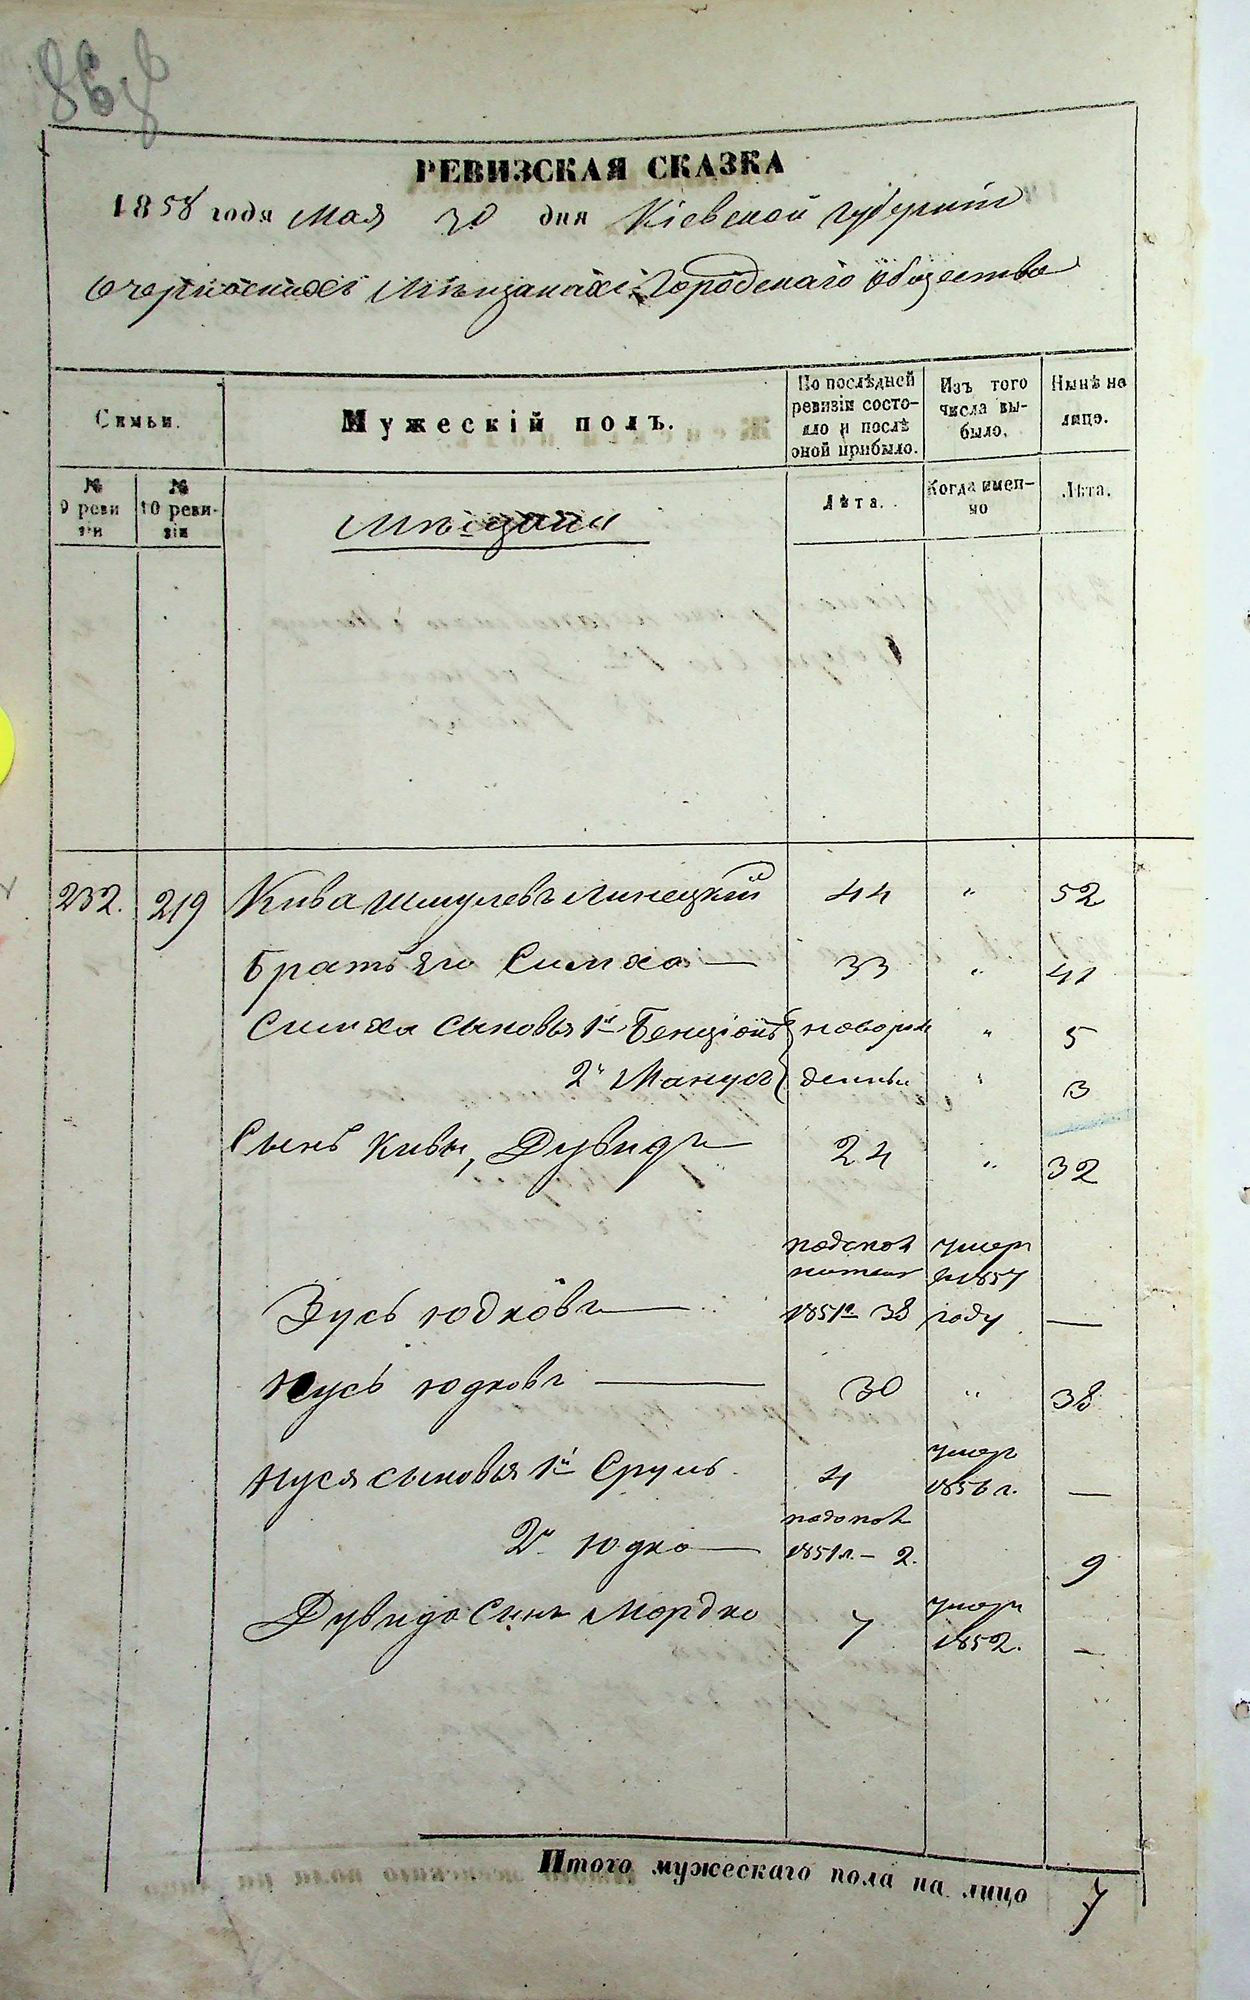 РЕВИЗСКАЯ СКАЗКА
1858 года Мая 30 дня Кіевской губерніи
о черкаскихъ Мѣщанахъ Городскаго общества
Симьи.
Мужескій полъ.
По послѣдней ревизіи состояло и послѣ оной прибыло.
Изъ того числа выбыло.
Нынѣ на лицо.
№ 9 ревизіи
№ 10 ревизіи
Мѣщане
Лѣта.
Когда именно
Лѣта.
232. 219 Кива Шмулевъ Линецкій 44 " 52
Братъ его Симха 33 " 41
Симха сыновья 1й Бенціонъ новорож " 5
2й Манусъ денны " 3
Сынъ Кивы, Дувидъ 24 " 32
Зусь Юдковъ 1851го 38 умеръ въ 1857 году —
Нусь Юдковъ 30 " 38
Нуся сыновья 1й Сруль 4 умеръ 1856 г. —
2й Юдко 1851г. – 2. 9
Дувида Сынъ Мордко 7 умеръ 1852. –
Итого мужескаго пола на лицо 7